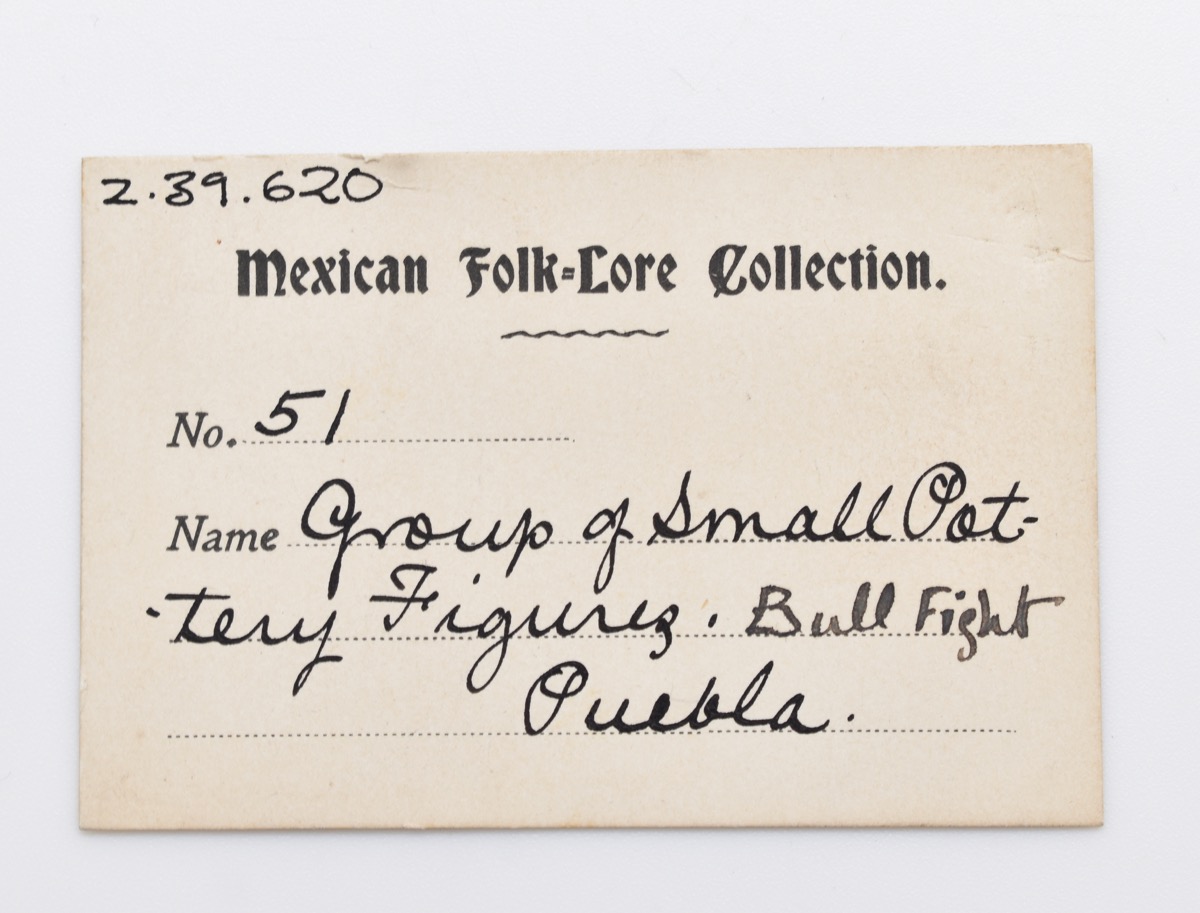 z.39.620
Mexican Folk=Lore Collection.
No. 51
Name Group of Small Pot-
-tery Figures. Bull Fight
Puebla.